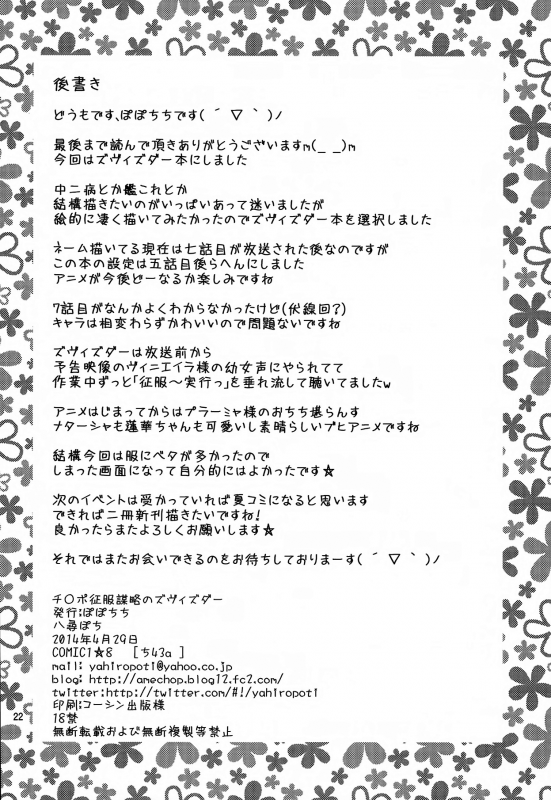 後書き
どうもです、ぽぽちちです( ´ ▽ ` )ﾉ
最後まで読んで頂きありがとうございますm(_ _)m
今回はズヴィズダー本にしました
中二病とか艦これとか
結構描きたいのがいっぱいあって迷いましたが
絵的に凄く描いてみたかったのでズヴィズダー本を選択しました
ネーム描いてる現在は七話目が放送された後なのですが
この本の設定は五話目後らへんにしました
アニメが今後どーなるか楽しみですね
7話目がなんかよくわからなかったけど(伏線回?)
キャラは相変わらずかわいいので問題ないですね
ズヴィズダーは放送前から
予告映像のヴィニエイラ様の幼女声にやられてて
作業中ずっと「征服～実行っ」を垂れ流して聴いてましたw
アニメはじまってからはプラーミャ様のおちち堪らんす
ナターシャも蓮華ちゃんも可愛いし素晴らしいブヒアニメですね
結構今回は服にベタが多かったので
しまった画面になって自分的にはよかったです☆
次のイベントは受かっていれば夏コミになると思います
できれば二冊新刊描きたいですね!
良かったらまたよろしくお願いします☆
それではまたお会いできるのをお待ちしておりまーす( ´ ▽ ` )ﾉ
チ〇ポ征服謀略のズヴィズダー
発行:ぽぽちち
八尋ぽち
2014年4月29日
COMIC1☆8 [ち43a]
mail: yahiropoti@yahoo.co.jp
blog: http://amechop.blog12.fc2.com/
twitter:http://twitter.com/#!/yahiropoti
印刷:コーシン出版様
18禁
無断転載および無断複製等禁止
22